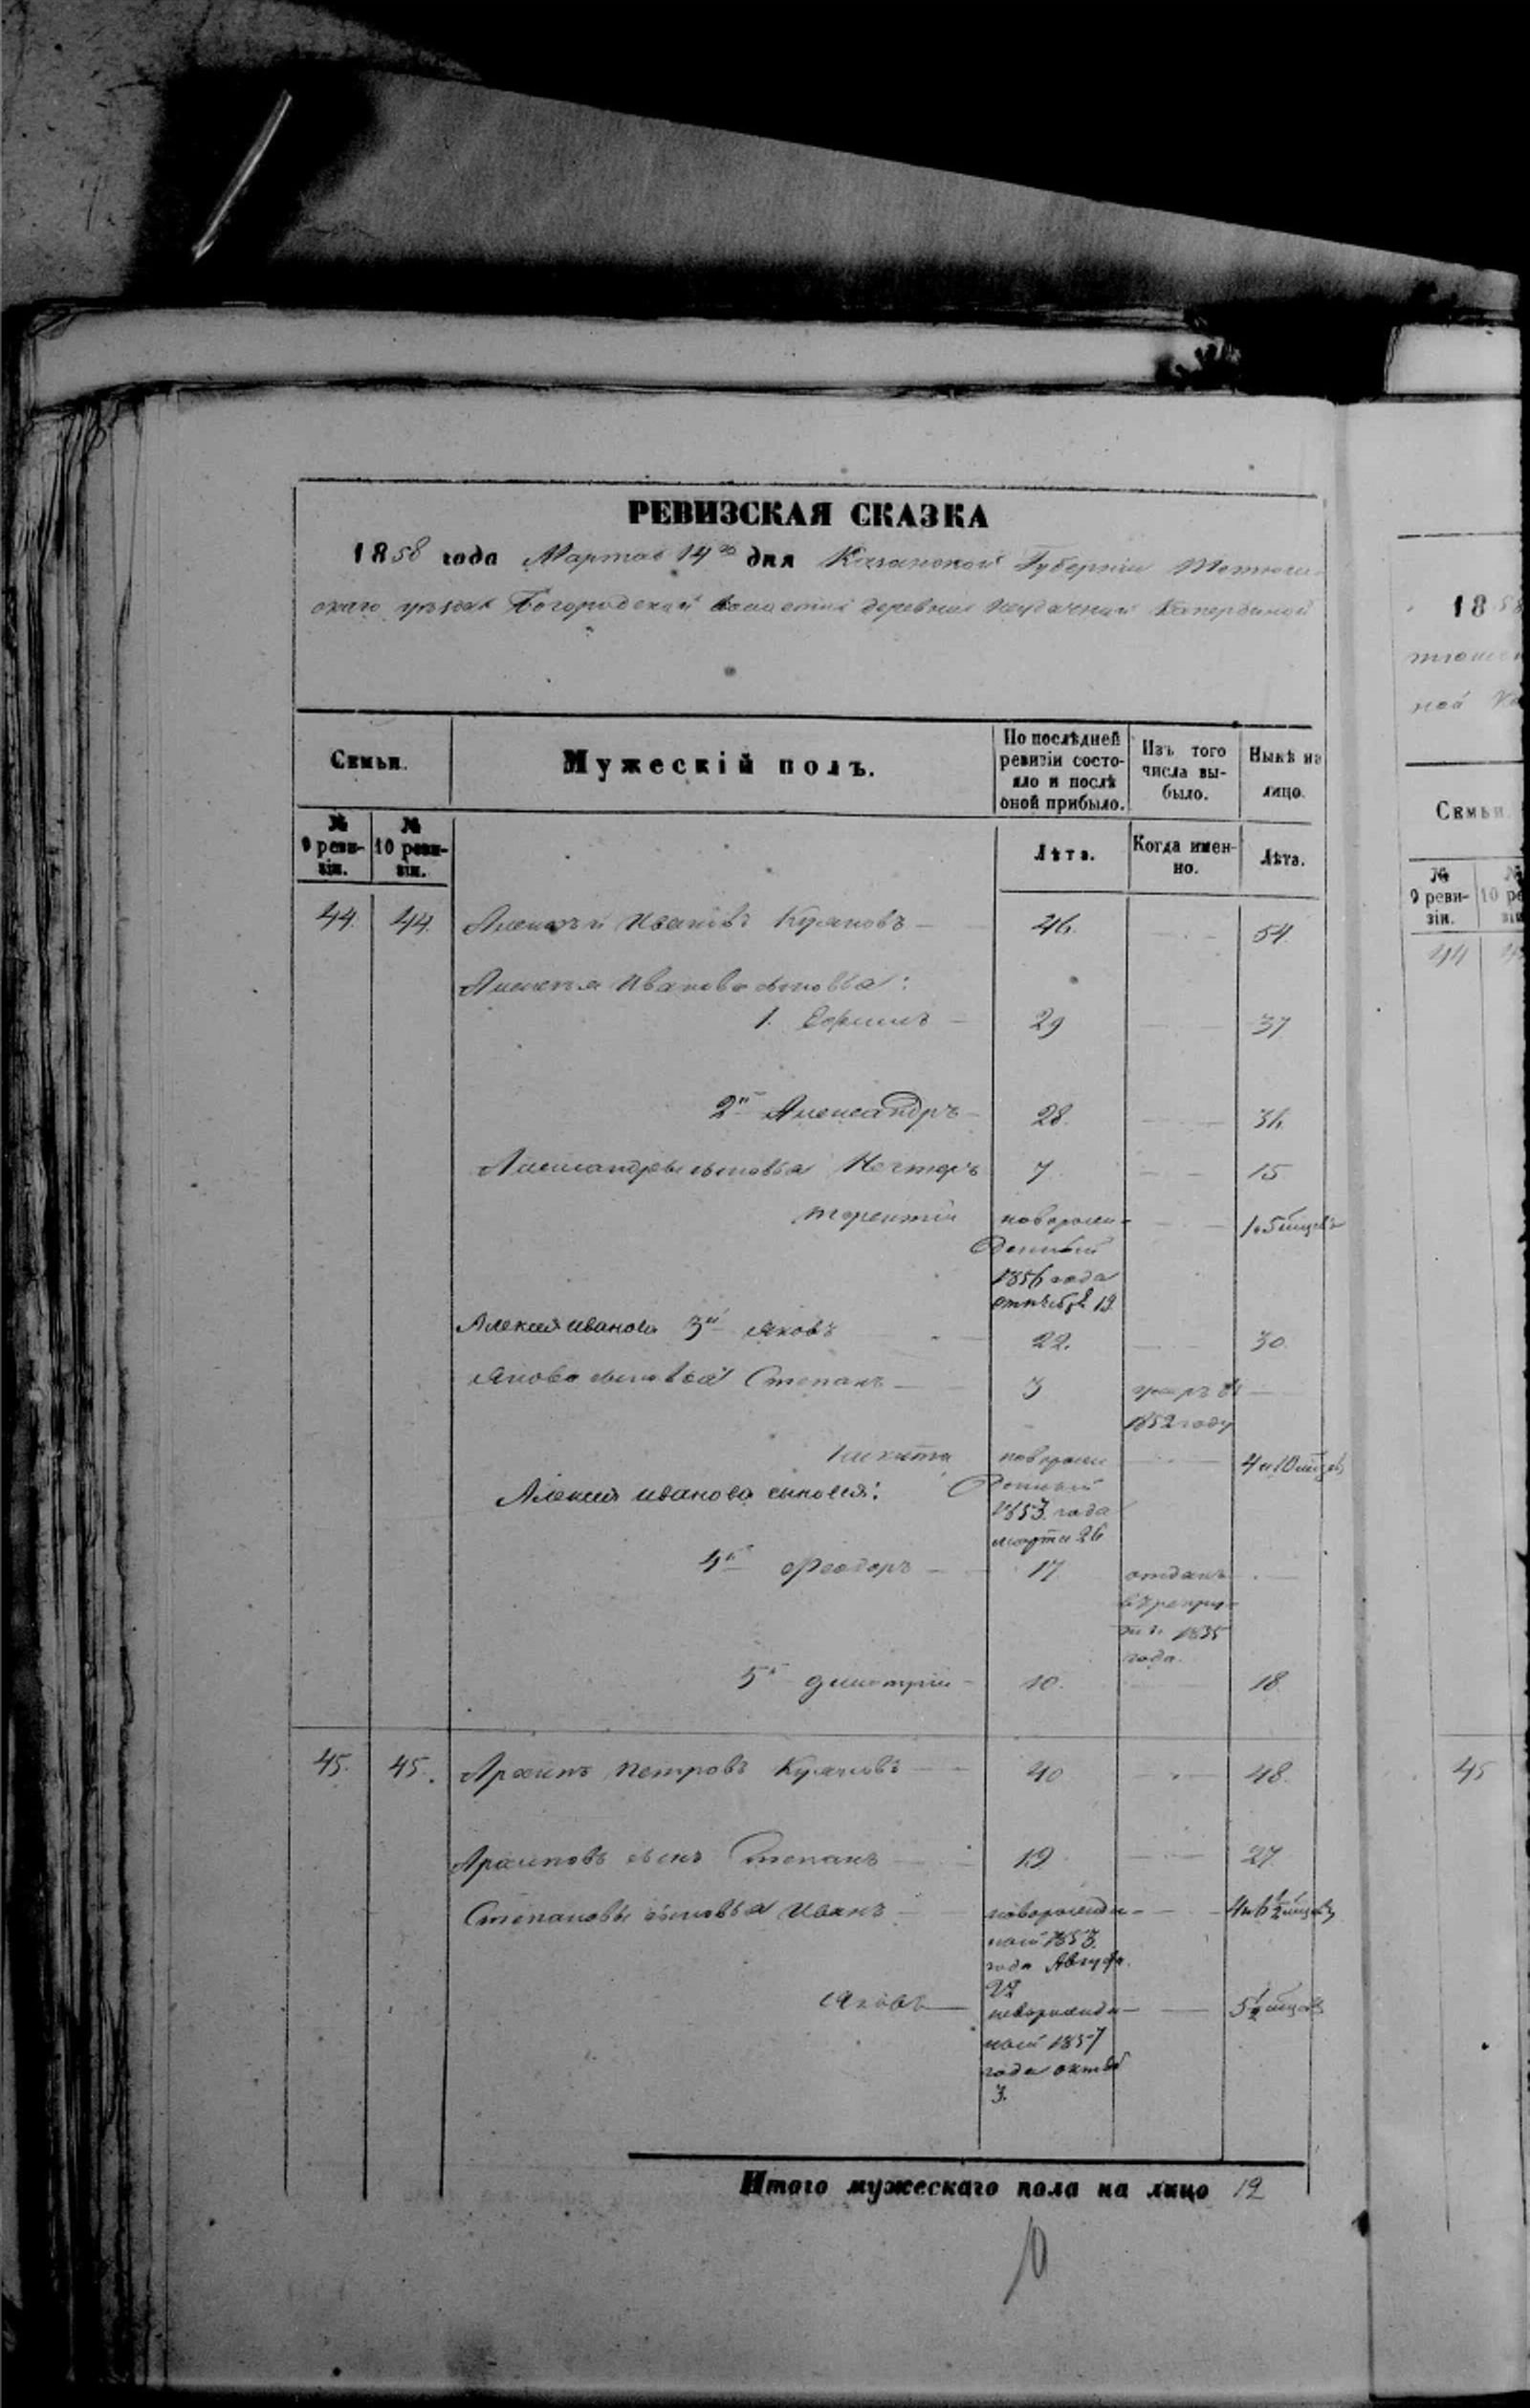 РЕВИЗСКАЯ СКАЗКА
1858 года Марта 14го дня Казанской Губернiи Тетюш-
скаго уѣзда Богородской волости деревни
Семьи.
Мужескiй полъ.
По послѣдней ревизiи состо-яло и послѣ оной прибыло.
Изъ того числа вы-было.
Нынѣ на лицо.
№ 9 реви-зiи.
№ 10 реви-зiи.
Лѣта.
Когда имен-но.
Лѣта.
44. 44. Алексѣй Ивановъ 46. 54.
Алексѣя Иванова сыновья:
1. Ефимъ 29 37
2й Александръ 28. 36.
Александровы сыновья Нестеръ 7 15
Терентiй новорож-денный 1856 года 19. 1 и 5 мѣсцевъ
Алексея Иванова 3й Яковъ 22. 30
Якова сыновья Степанъ 3 умеръ въ 1852 году
Никита новорожденный 1853 года марта 26 4 и 10 мѣсцевъ
Алексея Иванова сыновья:
4й Феодоръ 17 отданъ года.
5й Димитрiй 10. 18
45. 45. Архипъ Петровъ 40 48.
Архиповъ сынъ Степанъ 19 27.
Степановы сыновья Иванъ новорожден-ной 1853 года Августа 4 и 6 1/2 мѣсцевъ
Яковъ новорожден-ной 1857 года октяб 3. 5 1/2 мѣсцевъ
Итого мужескаго пола на лицо 12
1858
44
45
Семьи.
№ 9 реви-зiи.